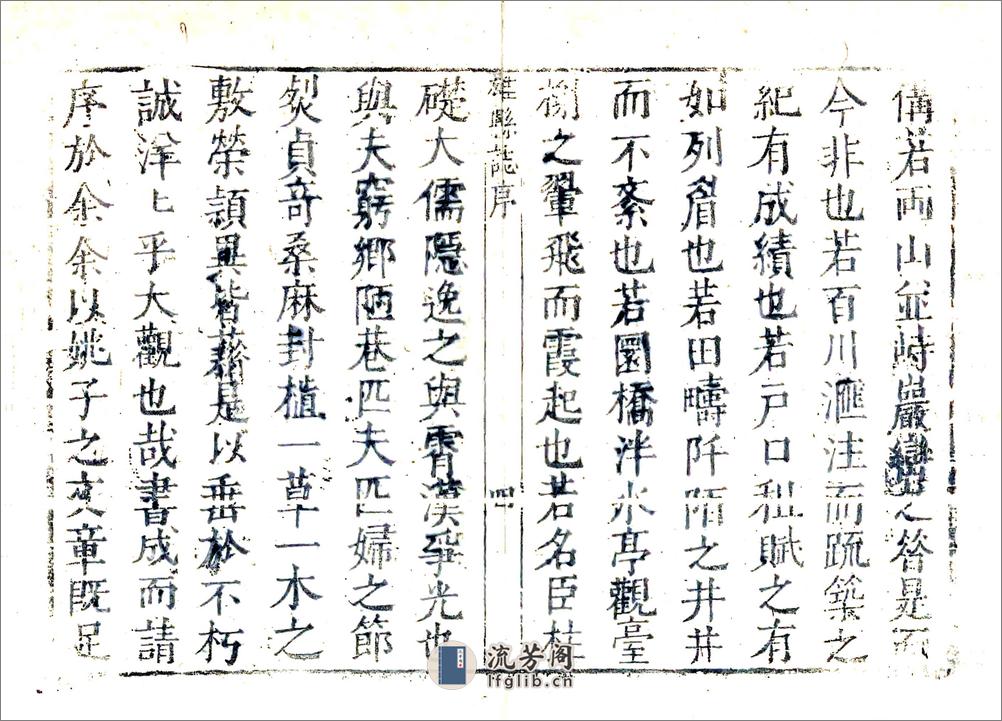 備若両山並峙巖巒之答是而
今非也若百川滙注而疏築之
紀有成績也若戸口租賦之有
如列眉也若田疇阡陌之井井
而不紊也若圜橋泮水亭觀臺
榭之翬飛而霞起也若名臣柱
雄縣誌序
四
礎大儒隱逸之與霄漢爭光也
與夫窮鄉陋巷匹夫匹婦之節
烈貞奇桑麻封植一草一木之
敷榮頴異皆藉是以垂於不朽
誠洋匕乎大觀也哉書成而請
序於余余以姚子之文章既足
流芳阁
lfglib.cn